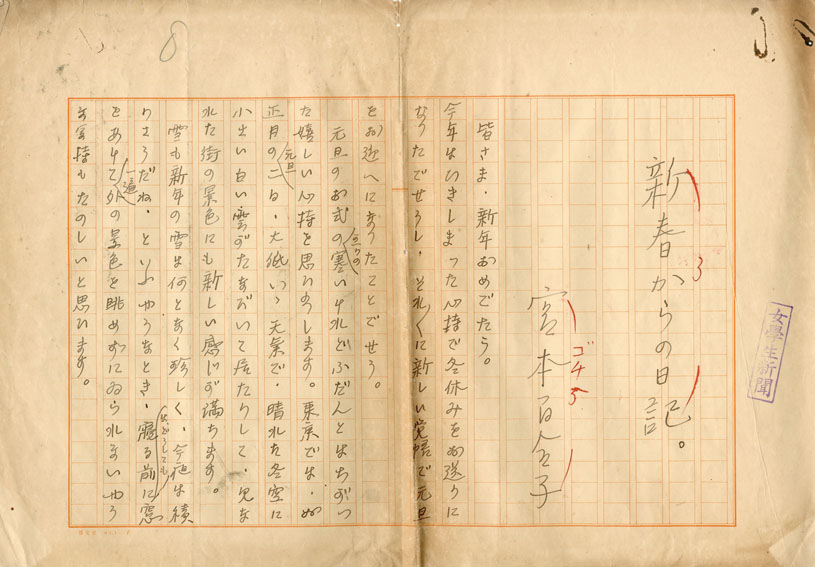 8
新春からの日記。
3
宮本百合子
ゴチ5
女學生新聞
皆さま、新年おめでたう。
今年はひきしまつた心持で冬休みをお送りに
なつたでせうし、それ〴〵に新しい覚悟で元旦
をお迎へになつたことでせう。
元旦のお式の寒いけれどふだんとはちがつ
た嬉しい心持を思ひ出します。東京では、お
元旦
正月の二日、大低いゝ天気で、晴れた冬空に
小さい白い雲がたなびいて居たりして、見な
れた街の景色にも新しい感じが満ちます。
雪も新年の雪は何となく珍しく、今夜は積
りさうだね、といふやうなとき、寝る前に窓
はどうしても
をあけて外の景色を眺めずにゐられないやう
一遍
な気持もたのしいと思ひます。